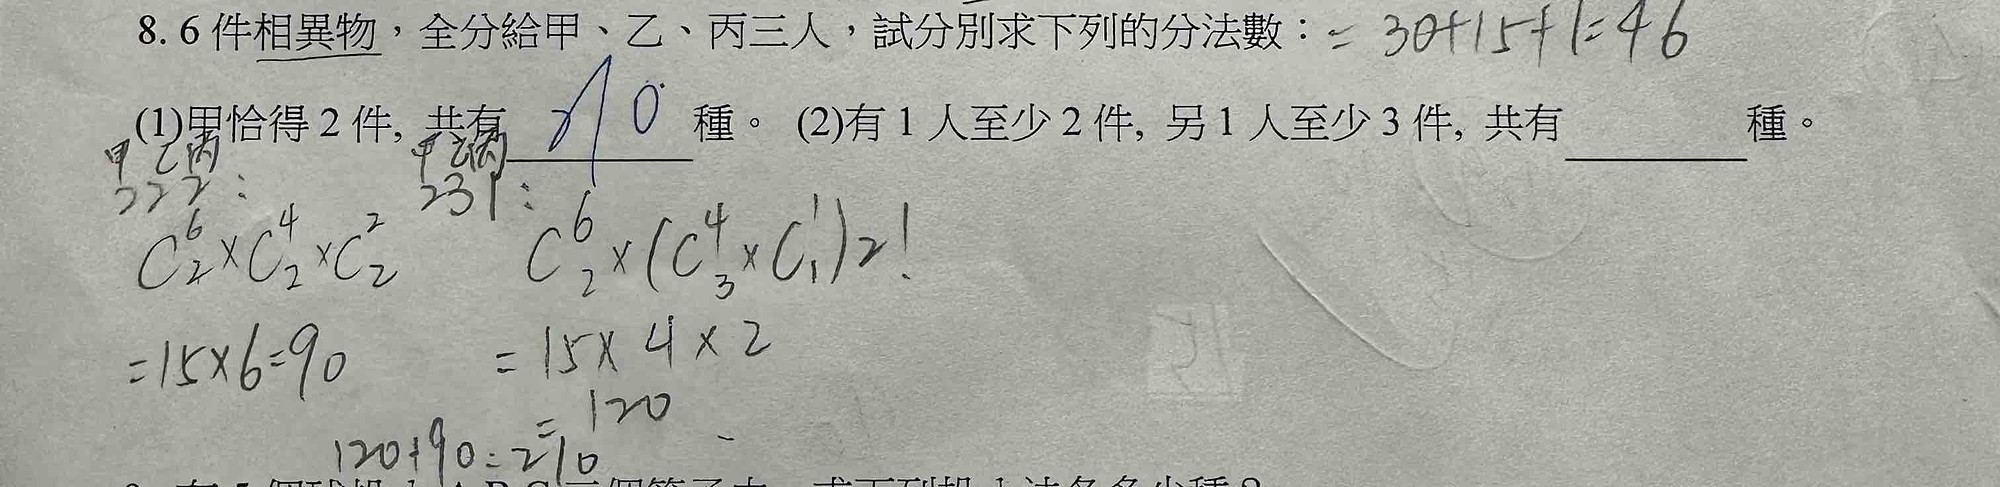 8. 6 件相異物，全分給甲、乙、丙三人，試分別求下列的分法數： = 30+15+1=46
(1)甲恰得 2 件, 共有 210 種。 (2)有 1 人至少 2 件, 另 1 人至少 3 件, 共有 種。
甲乙丙 甲乙丙
222: 231:
C⁶₂×C⁴₂×C²₂ C⁶₂×(C⁴₃×C¹₁)2!
=15×6=90 =15×4×2
=120
120+90=210